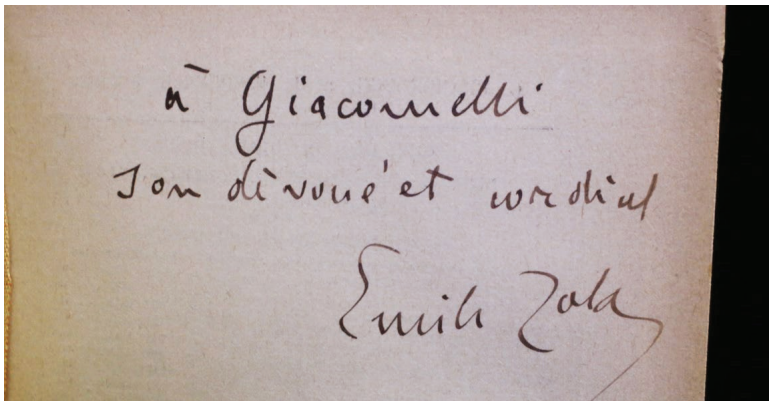 à Giacomelli
son dévoué et cordial
Emile Zola